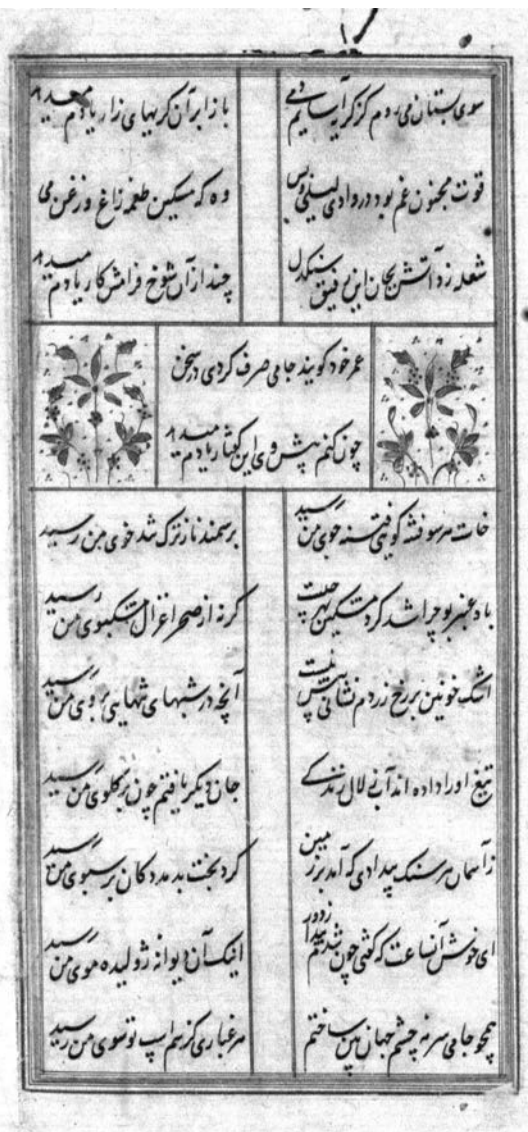 سوی بستان می روم کز گریه آسایم دمی
باز ابر آن گریهای زار یادم میدهد
قوت مجنون غم بود در وادی لیلی و بس
وه که مسکین طعمه زاغ و زغن می
شعله زد آتش بجان این رفیق سنگدل
چند از آن شوخ فرامش کار یادم میدهد
عمر خود گویند جامی صرف کردی در سخن
چون کنم پیش وی این گفتار یادم میدهد
خاست هر سو فتنه گویی فتنه جوی من رسید
بر سمند ناز ترک تند خوی من رسید
باد عنبر بو چرا شد گرد مشکین بهر چیست
گر نه از صحرا غزال مشکبوی من رسید
اشک خونین بر رخ زردم نشانی بیش نیست
آنچه در شبهای تنهایی بروی من رسید
تیغ او را داده اند آبی زلال زندگی
جان دیگر یافتم چون بر گلوی من رسید
ز آسمان هر سنگ بیدادی که آمد بر زمین
کرد بخت بد مدد کان بر سبوی من رسید
ای خوش آن ساعت که گفتی چون شدم پیدا ز دور
اینک آن دیوانه ژولیده موی من رسید
همچو جامی سرمه چشم جهان بین ساختم
هر غباری کز سم اسپ تو سوی من رسید